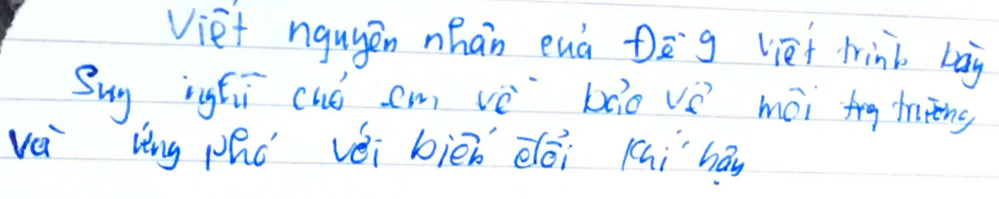 Viết nguyên nhân của Đề 9 viết trình bày
Suy nghĩ của em về bảo vệ môi trg trường
và ứng phó với biến đổi khí hậu